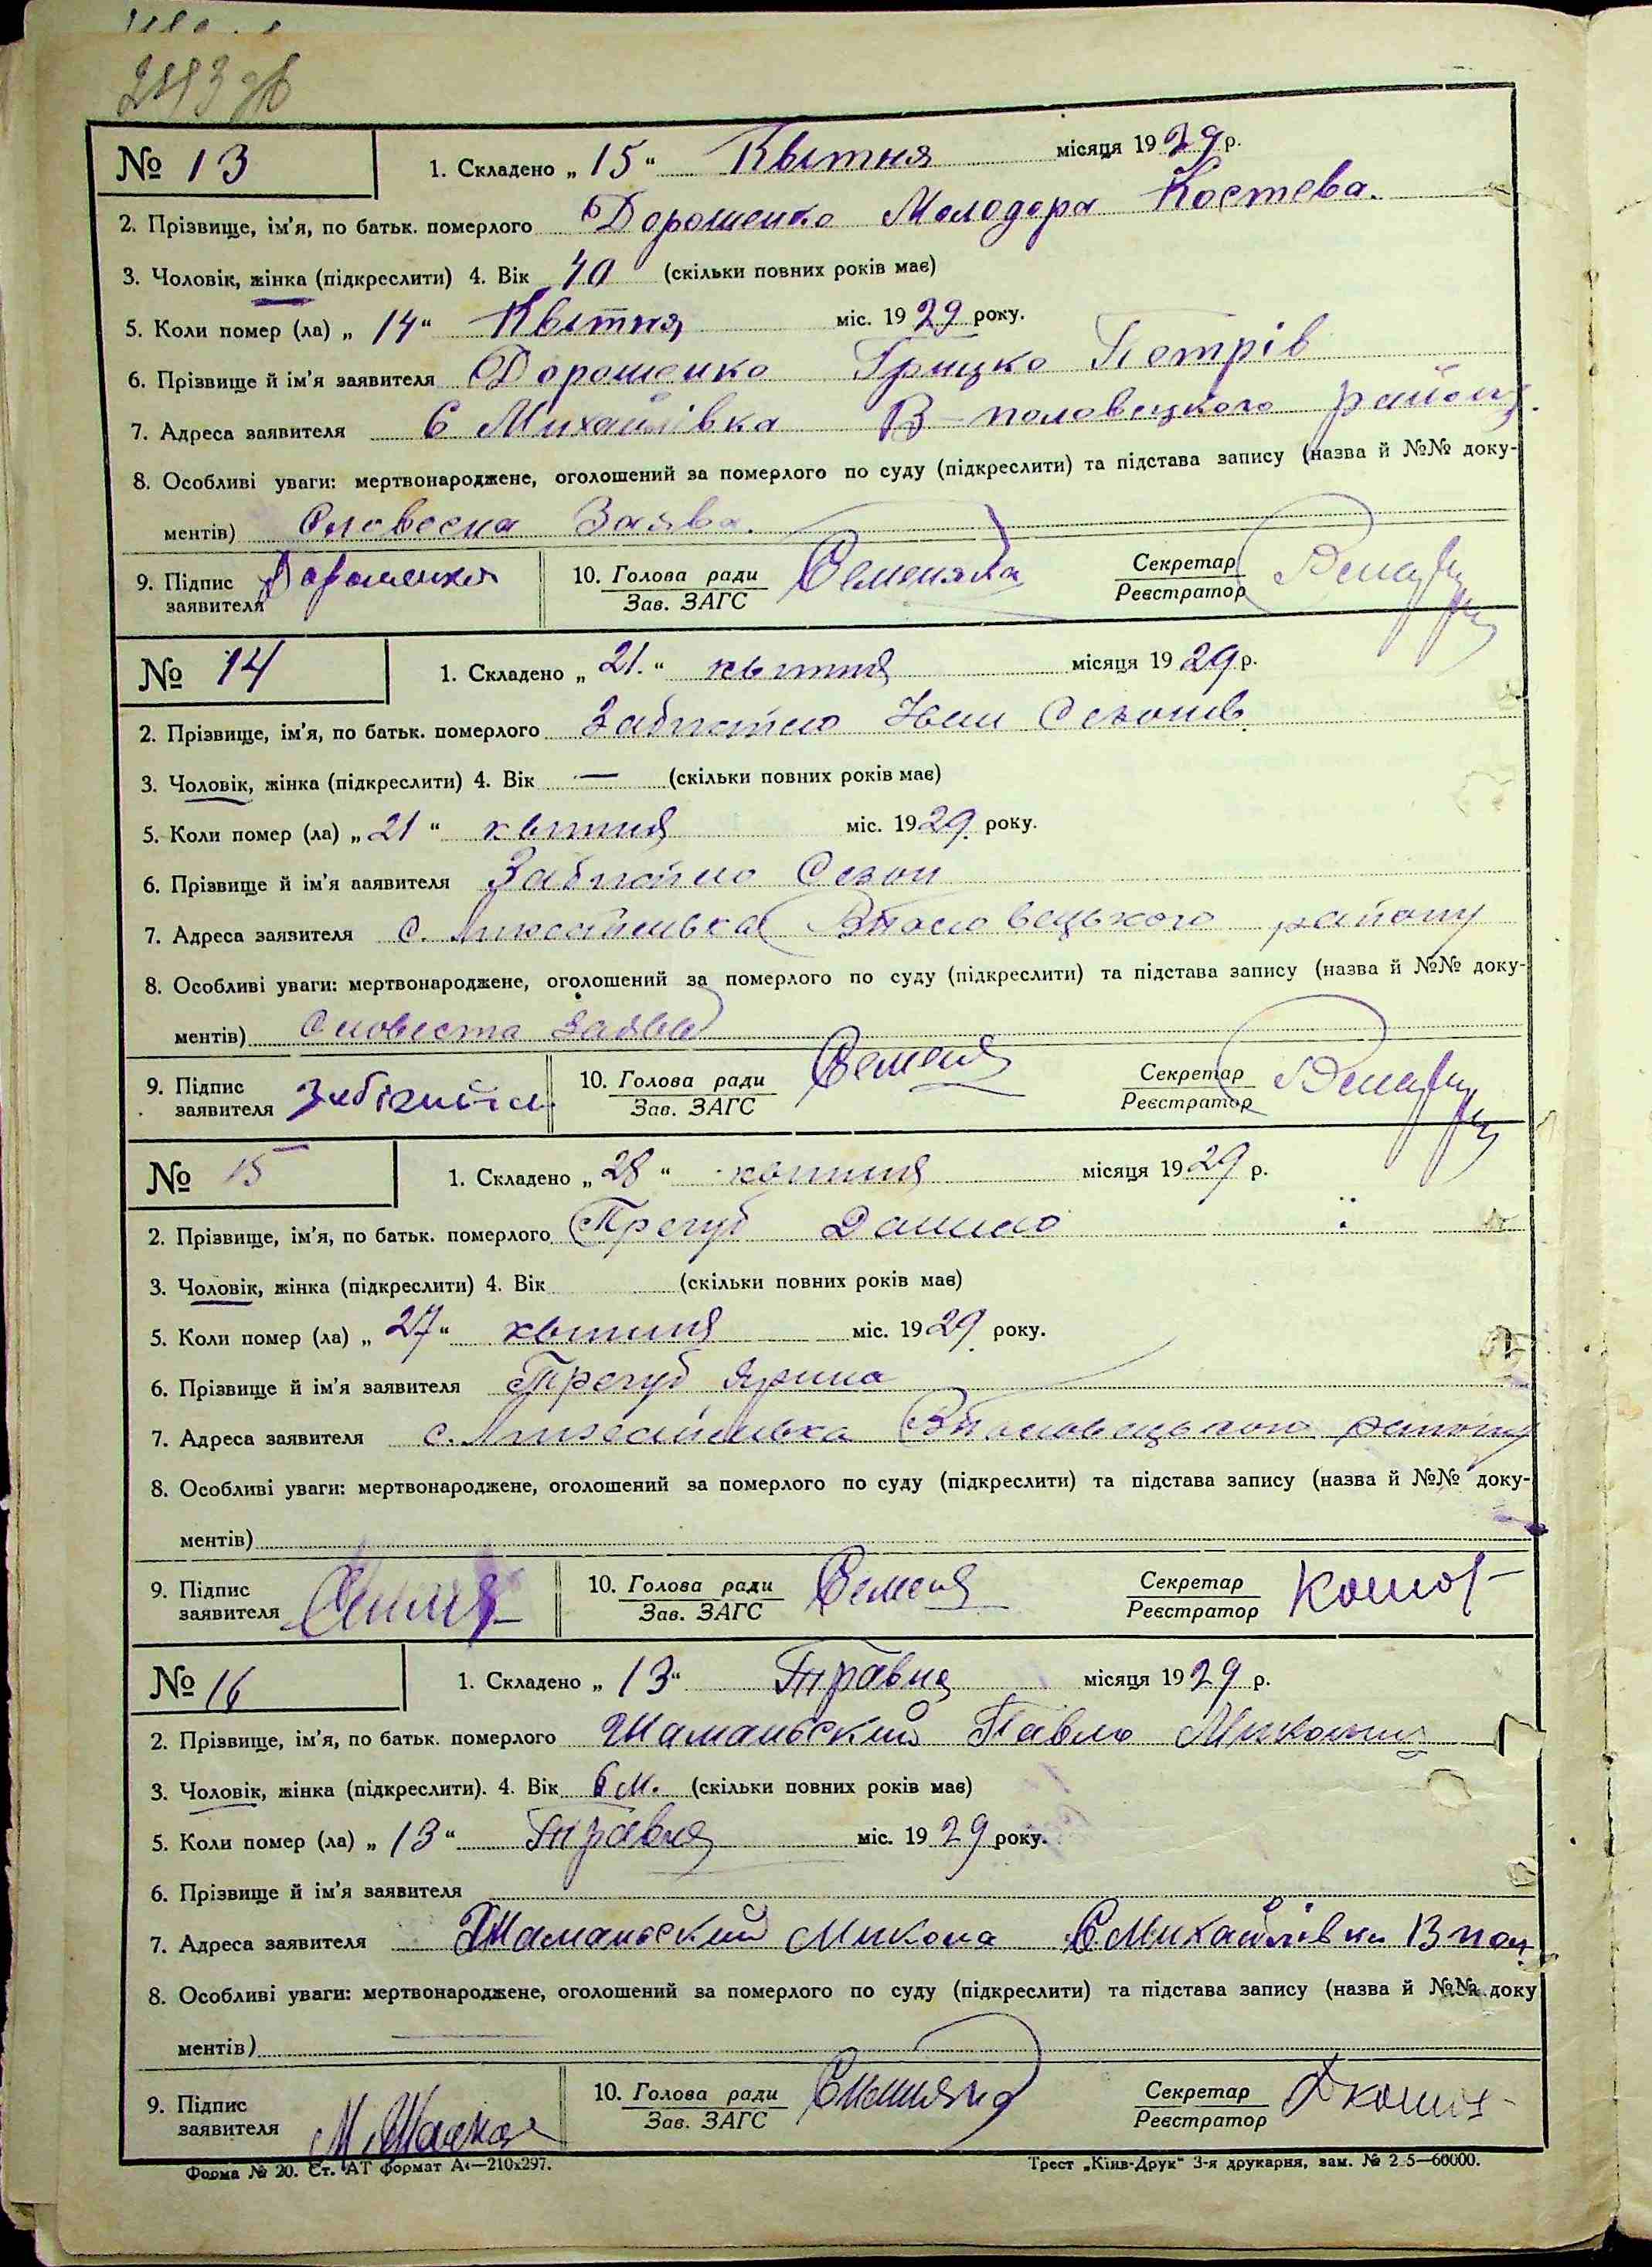 № 13 1. Складено „ 15 “ Квітня місяця 1929 р.
2. Прізвище, ім'я, по батьк. померлого Дорошенко Мелодора Костева.
3. Чоловік, жінка (підкреслити) 4. Вік 40 (скільки повних років має)
5. Коли помер (ла) „ 14 “ Квітня міс. 1929 року.
6. Прізвище й ім'я заявителя Дорошенко Грицко Петрів
7. Адреса заявителя С Михайлівка В-половецкого району.
8. Особливі уваги: мертвонароджене, оголошений за померлого по суду (підкреслити) та підстава запису (назва й №№ доку-
ментів) Словесна Заява.
9. Підпис заявителя Дорошенко 10. Голова ради Зав. ЗАГС Семеняка Секретар Реєстратор
№ 14 1. Складено „ 21. “ квітня місяця 1929 р.
2. Прізвище, ім'я, по батьк. померлого Іван
3. Чоловік, жінка (підкреслити) 4. Вік — (скільки повних років має)
5. Коли помер (ла) „ 21 “ квітня міс. 1929 року.
6. Прізвище й ім'я ааявителя
7. Адреса заявителя с. Михайлівка Вполовецького району
8. Особливі уваги: мертвонароджене, оголошений за померлого по суду (підкреслити) та підстава запису (назва й №№ доку-
ментів) Словесна заява
9. Підпис заявителя 10. Голова ради Зав. ЗАГС Семеня Секретар Реєстратор
№ 15 1. Складено „ 28 “ квітня місяця 1929 р.
2. Прізвище, ім'я, по батьк. померлого Трегуб Данило
3. Чоловік, жінка (підкреслити) 4. Вік (скільки повних років має)
5. Коли помер (ла) „ 27 “ квітня міс. 1929 року.
6. Прізвище й ім'я заявителя Трегуб Ярина
7. Адреса заявителя с. Михайлівка Вполовецького району
8. Особливі уваги: мертвонароджене, оголошений за померлого по суду (підкреслити) та підстава запису (назва й №№ доку-
ментів)
9. Підпис заявителя 10. Голова ради Зав. ЗАГС Семеня Секретар Реєстратор
№ 16 1. Складено „ 13 “ Травня місяця 1929 р.
2. Прізвище, ім'я, по батьк. померлого Шаманский Павло
3. Чоловік, жінка (підкреслити). 4. Вік 6 м. (скільки повних років має)
5. Коли помер (ла) „ 13 “ Травня міс. 1929 року.
6. Прізвище й ім'я заявителя
7. Адреса заявителя Шаманский Микола С Михайлівка В пол
8. Особливі уваги: мертвонароджене, оголошений за померлого по суду (підкреслити) та підстава запису (назва й №№ доку
ментів)
9. Підпис заявителя 10. Голова ради Зав. ЗАГС Секретар Реєстратор
Форма № 20. Ст. АТ формат А4—210х297. Трест „Київ-Друк“ 3-я друкарня, зам. № 2 5—60000.